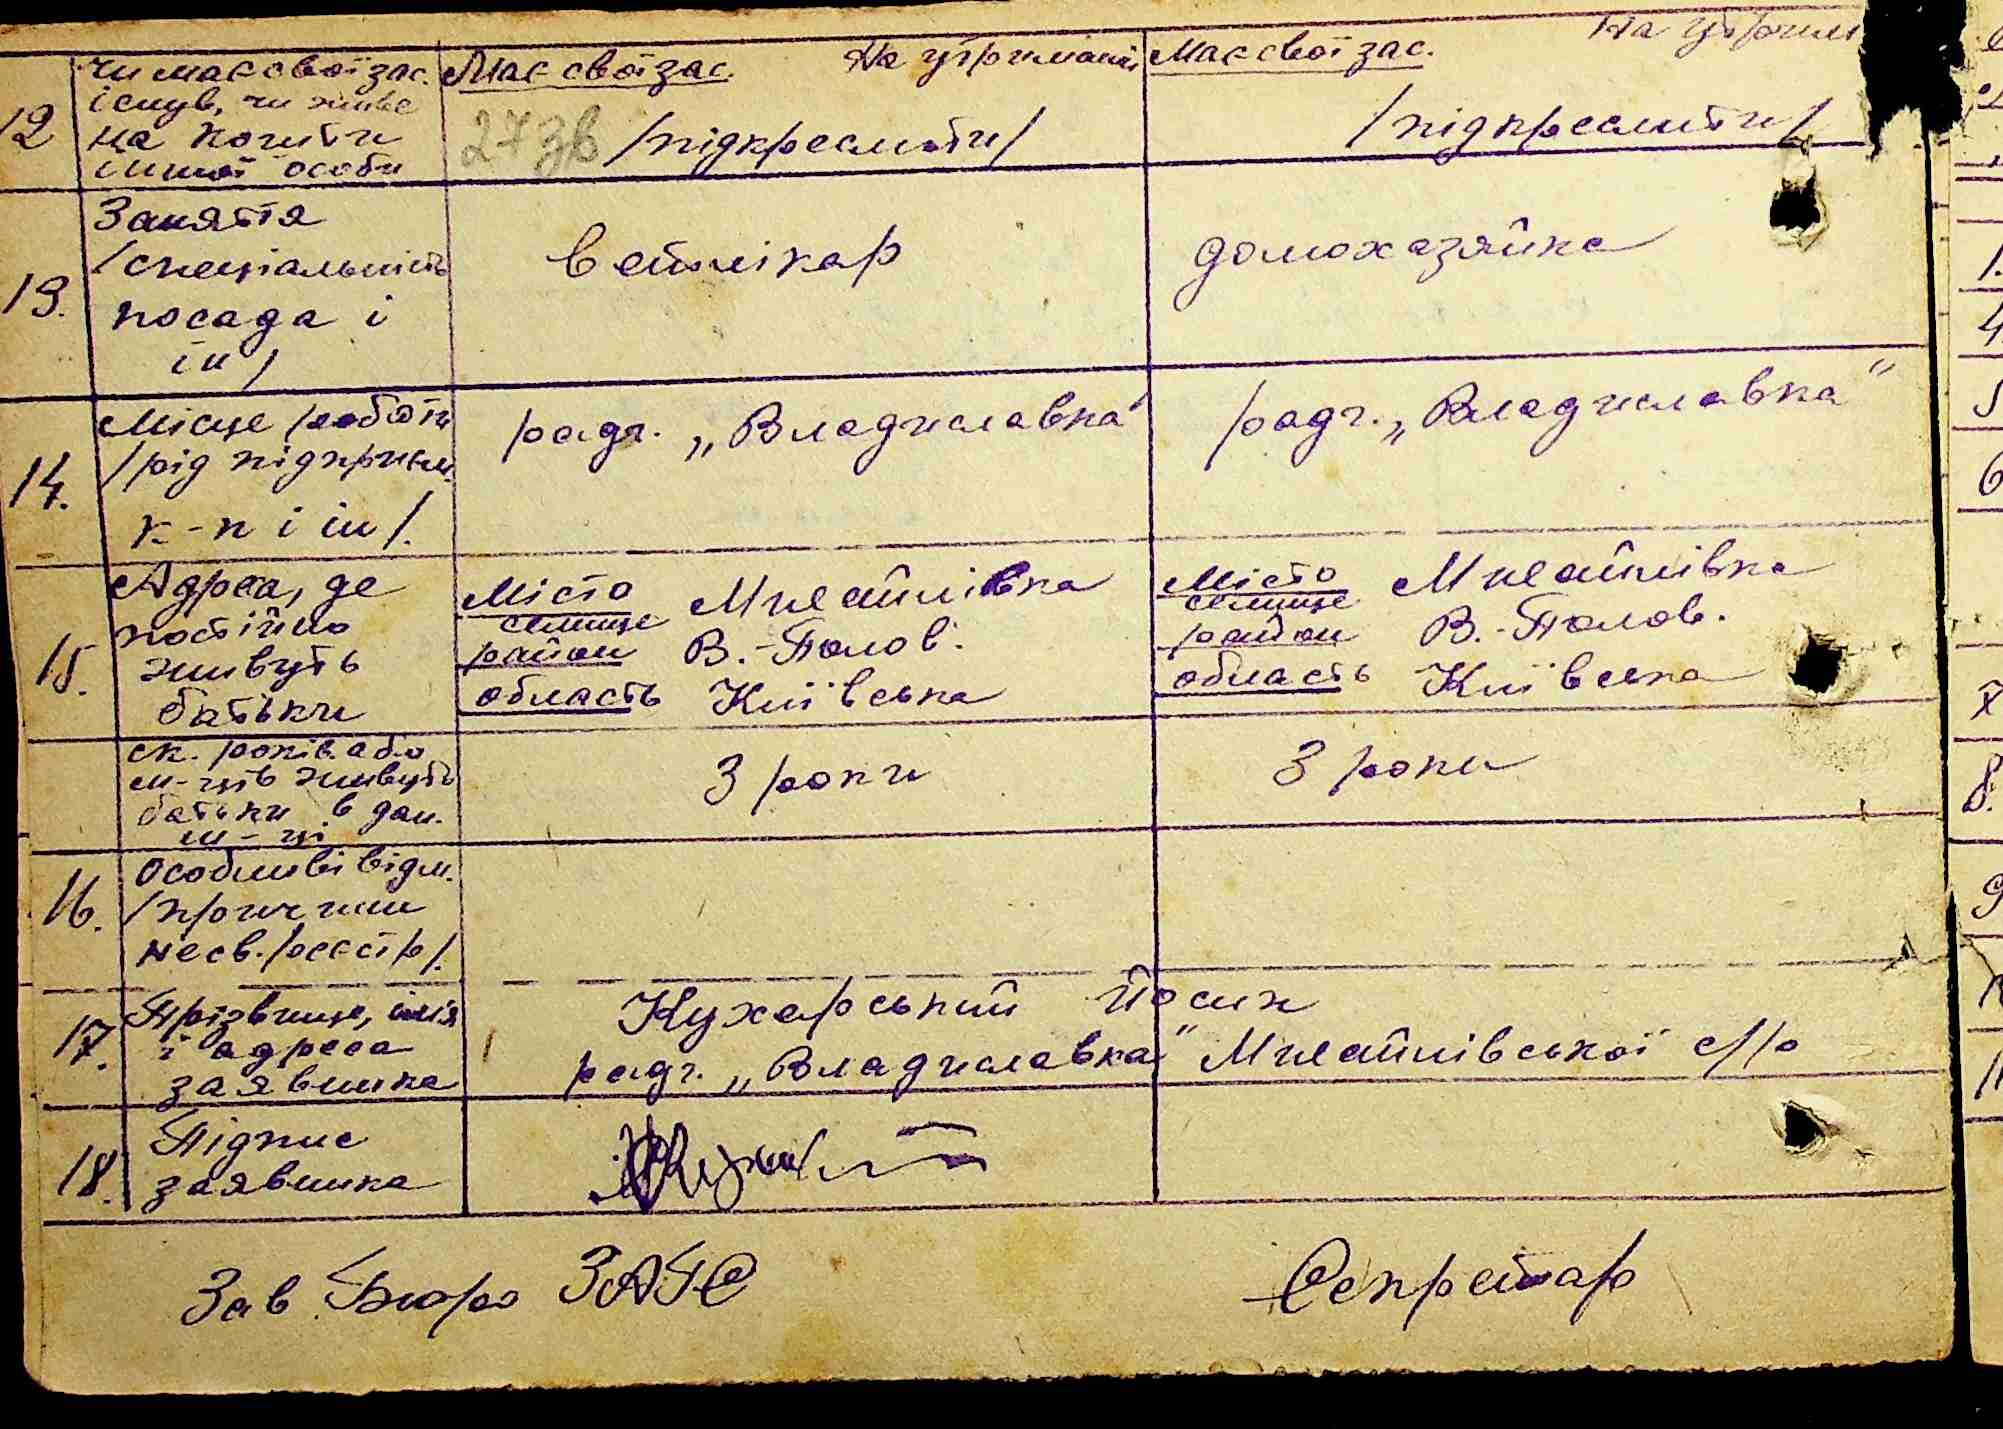 12 Чи має свої зас. Має свої зас. На утриманні Має свої зас. На утрим
існув, чи живе
на кошти 27 зв /підкреслити/ /підкреслити/
іншої особи
13. Заняття
/спеціальність ветлікар домохазяйка
посада і
ін/
14. Місце роботи радг. „Владиславка" радг. „Владиславка"
/рід підприєм.
к-п і ін/.
15. Адреса, де Місто Микитівка Місто
постійно селище селище
живуть район В.-Полов. район В.-Полов.
батьки область Київська область Київська
ск. років або 3 роки 3 роки
м-ців живуть
батьки в дан.
м-ці
16. Особливі відм.
/причини
несв. реєстр/.
17. Прізвище, імя Кухарський Йосип
і адреса радг. „Владиславка"
заявника
18. Підпис
заявника
Зав Бюро ЗАГС Секретар